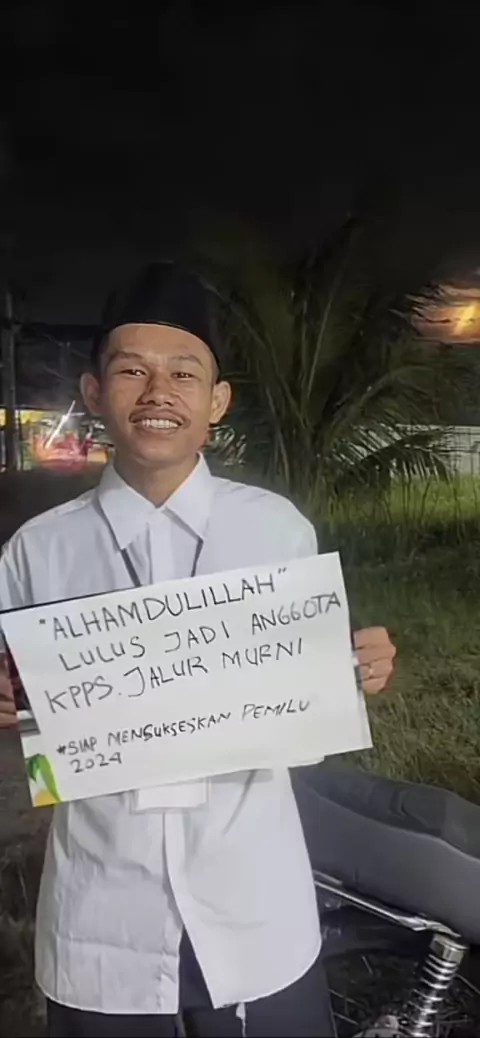 "ALHAMDULILLAH"
LULUS JADI ANGGOTA
KPPS. JALUR MURNI
*SIAP MENSUKSESKAN PEMILU
2024